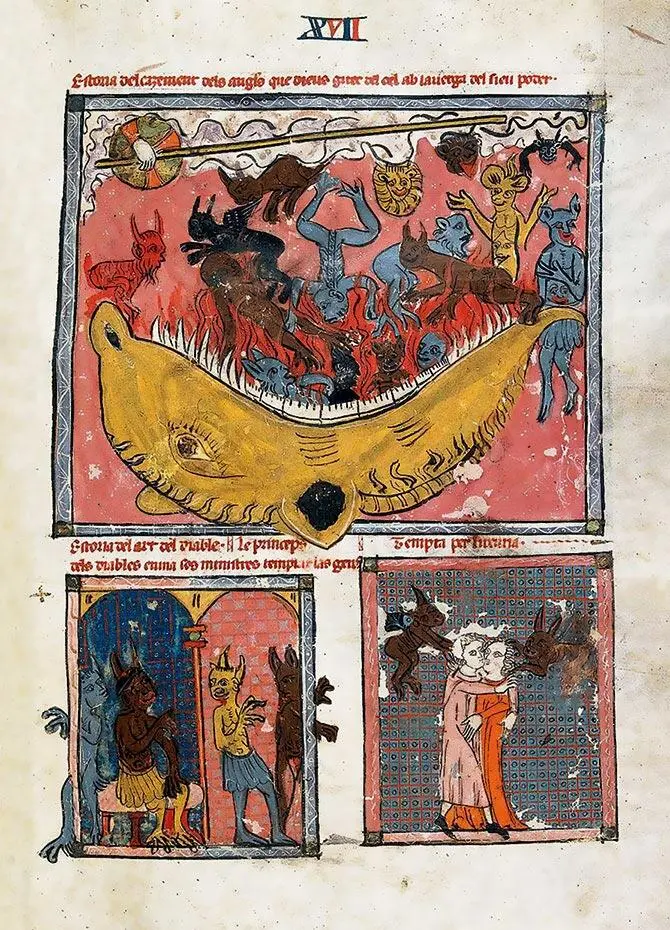 XVII
Estoria del cazement dels angls que dieus gitet del cel ab lauerga del sieu poder·
Estoria del art del diable· Le princeps
dels diables enuia sos ministres temptar las gens
Tempta per luxuria·